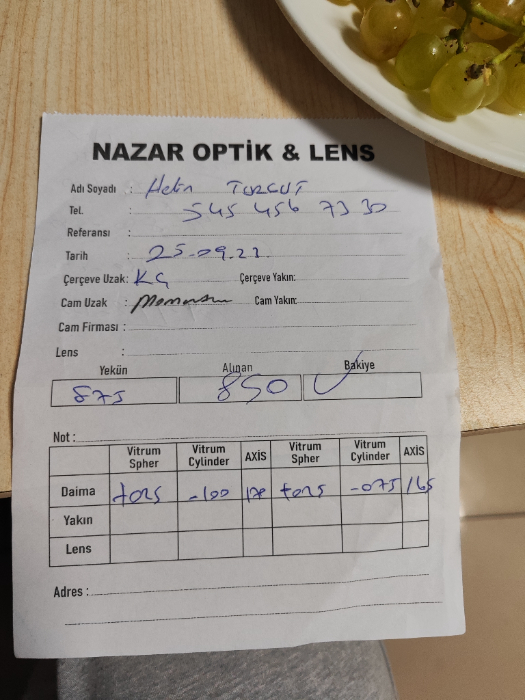 NAZAR OPTİK & LENS
Adı Soyadı : Helin TURGUT
Tel. : 545 456 73 30
Referansı :
Tarih : 25.09.22
Çerçeve Uzak: KG Çerçeve Yakın:
Cam Uzak : Cam Yakın:
Cam Firması :
Lens :
Yekün Alınan Bakiye
875 850
Not :
Vitrum Spher Vitrum Cylinder AXİS Vitrum Spher Vitrum Cylinder AXİS
Daima +025 -100 170 +025 -075 165
Yakın
Lens
Adres :